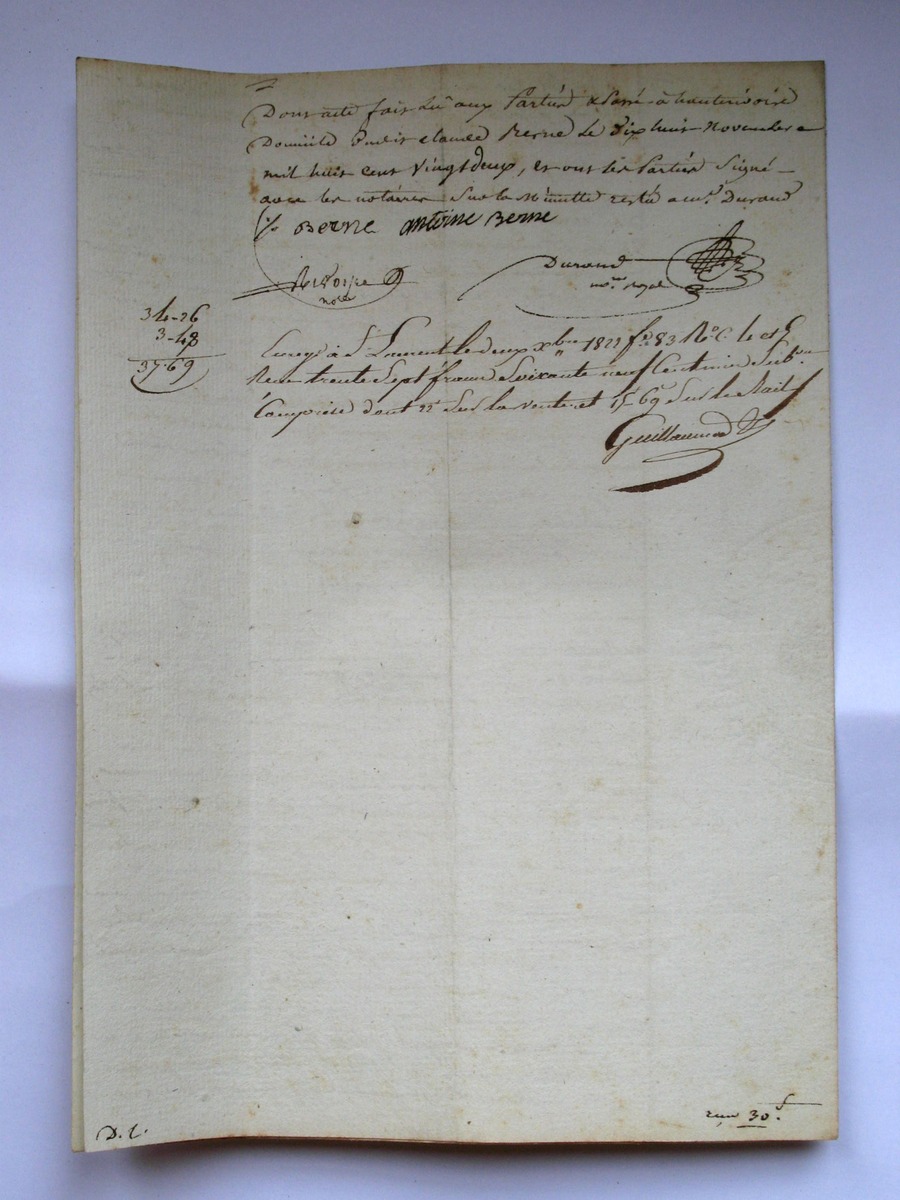 Dont acte fait Lu aux Parties & Passé à hauterivoire
Domicile Dudit claude Berne Le Dix huit Novembre
mil huit cent Vingt deux, et ont les Parties Signé
avec les notaires Sur la Minutte restée a mr. Durand
C. Berne antoine Berne
Durand
nore. royal
nore
34-26
3-48
37-69
Enregé à St Laurent le deux Xbre 1822 fo. 83 Ro. C. 
Reçu trente Sept francs Soixante neuf Centimes Subon.
Comprise dont 22 Sur la vente et 15 69 Sur le Bail
Guillaumod
reçu 30 f.